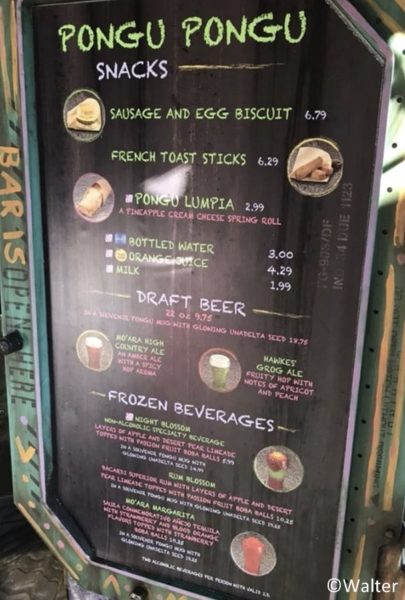 PONGU PONGU
SNACKS
SAUSAGE AND EGG BISCUIT 6.79
FRENCH TOAST STICKS 6.29
PONGU LUMPIA 2.99
A PINEAPPLE CREAM CHEESE SPRING ROLL
BOTTLED WATER 3.00
ORANGE JUICE 4.29
MILK 1.99
DRAFT BEER
22 OZ 9.75
IN A SOUVENIR PONGU MUG WITH GLOWING UNADELTA SEED 18.75
MO'ARA HIGH
COUNTRY ALE
AN AMBER ALE
WITH A SPICY
HOP AROMA
HAWKES'
GROG ALE
FRUITY HOP WITH
NOTES OF APRICOT
AND PEACH
FROZEN BEVERAGES
NIGHT BLOSSOM
NON-ALCOHOLIC SPECIALTY BEVERAGE
LAYERS OF APPLE AND DESERT PEAR LIMEADE
TOPPED WITH PASSION FRUIT BOBA BALLS 5.99
IN A SOUVENIR PONGU MUG WITH
GLOWING UNADELTA SEED 14.99
RUM BLOSSOM
BACARDI SUPERIOR RUM WITH LAYERS OF APPLE AND DESERT
PEAR LIMEADE TOPPED WITH PASSION FRUIT BOBA BALLS 10.25
IN A SOUVENIR PONGU MUG WITH GLOWING UNADELTA SEED 19.25
MO'ARA MARGARITA
SAUZA CONMEMORATIVO AÑEJO TEQUILA
WITH STRAWBERRY AND BLOOD ORANGE
FLAVORS TOPPED WITH STRAWBERRY
BOBA BALLS 10.25
IN A SOUVENIR PONGU
MUG WITH GLOWING
UNADELTA SEED 19.25
TWO ALCOHOLIC BEVERAGES PER PERSON WITH VALID I.D.
BAR IS
OPEN HERE
©Walter